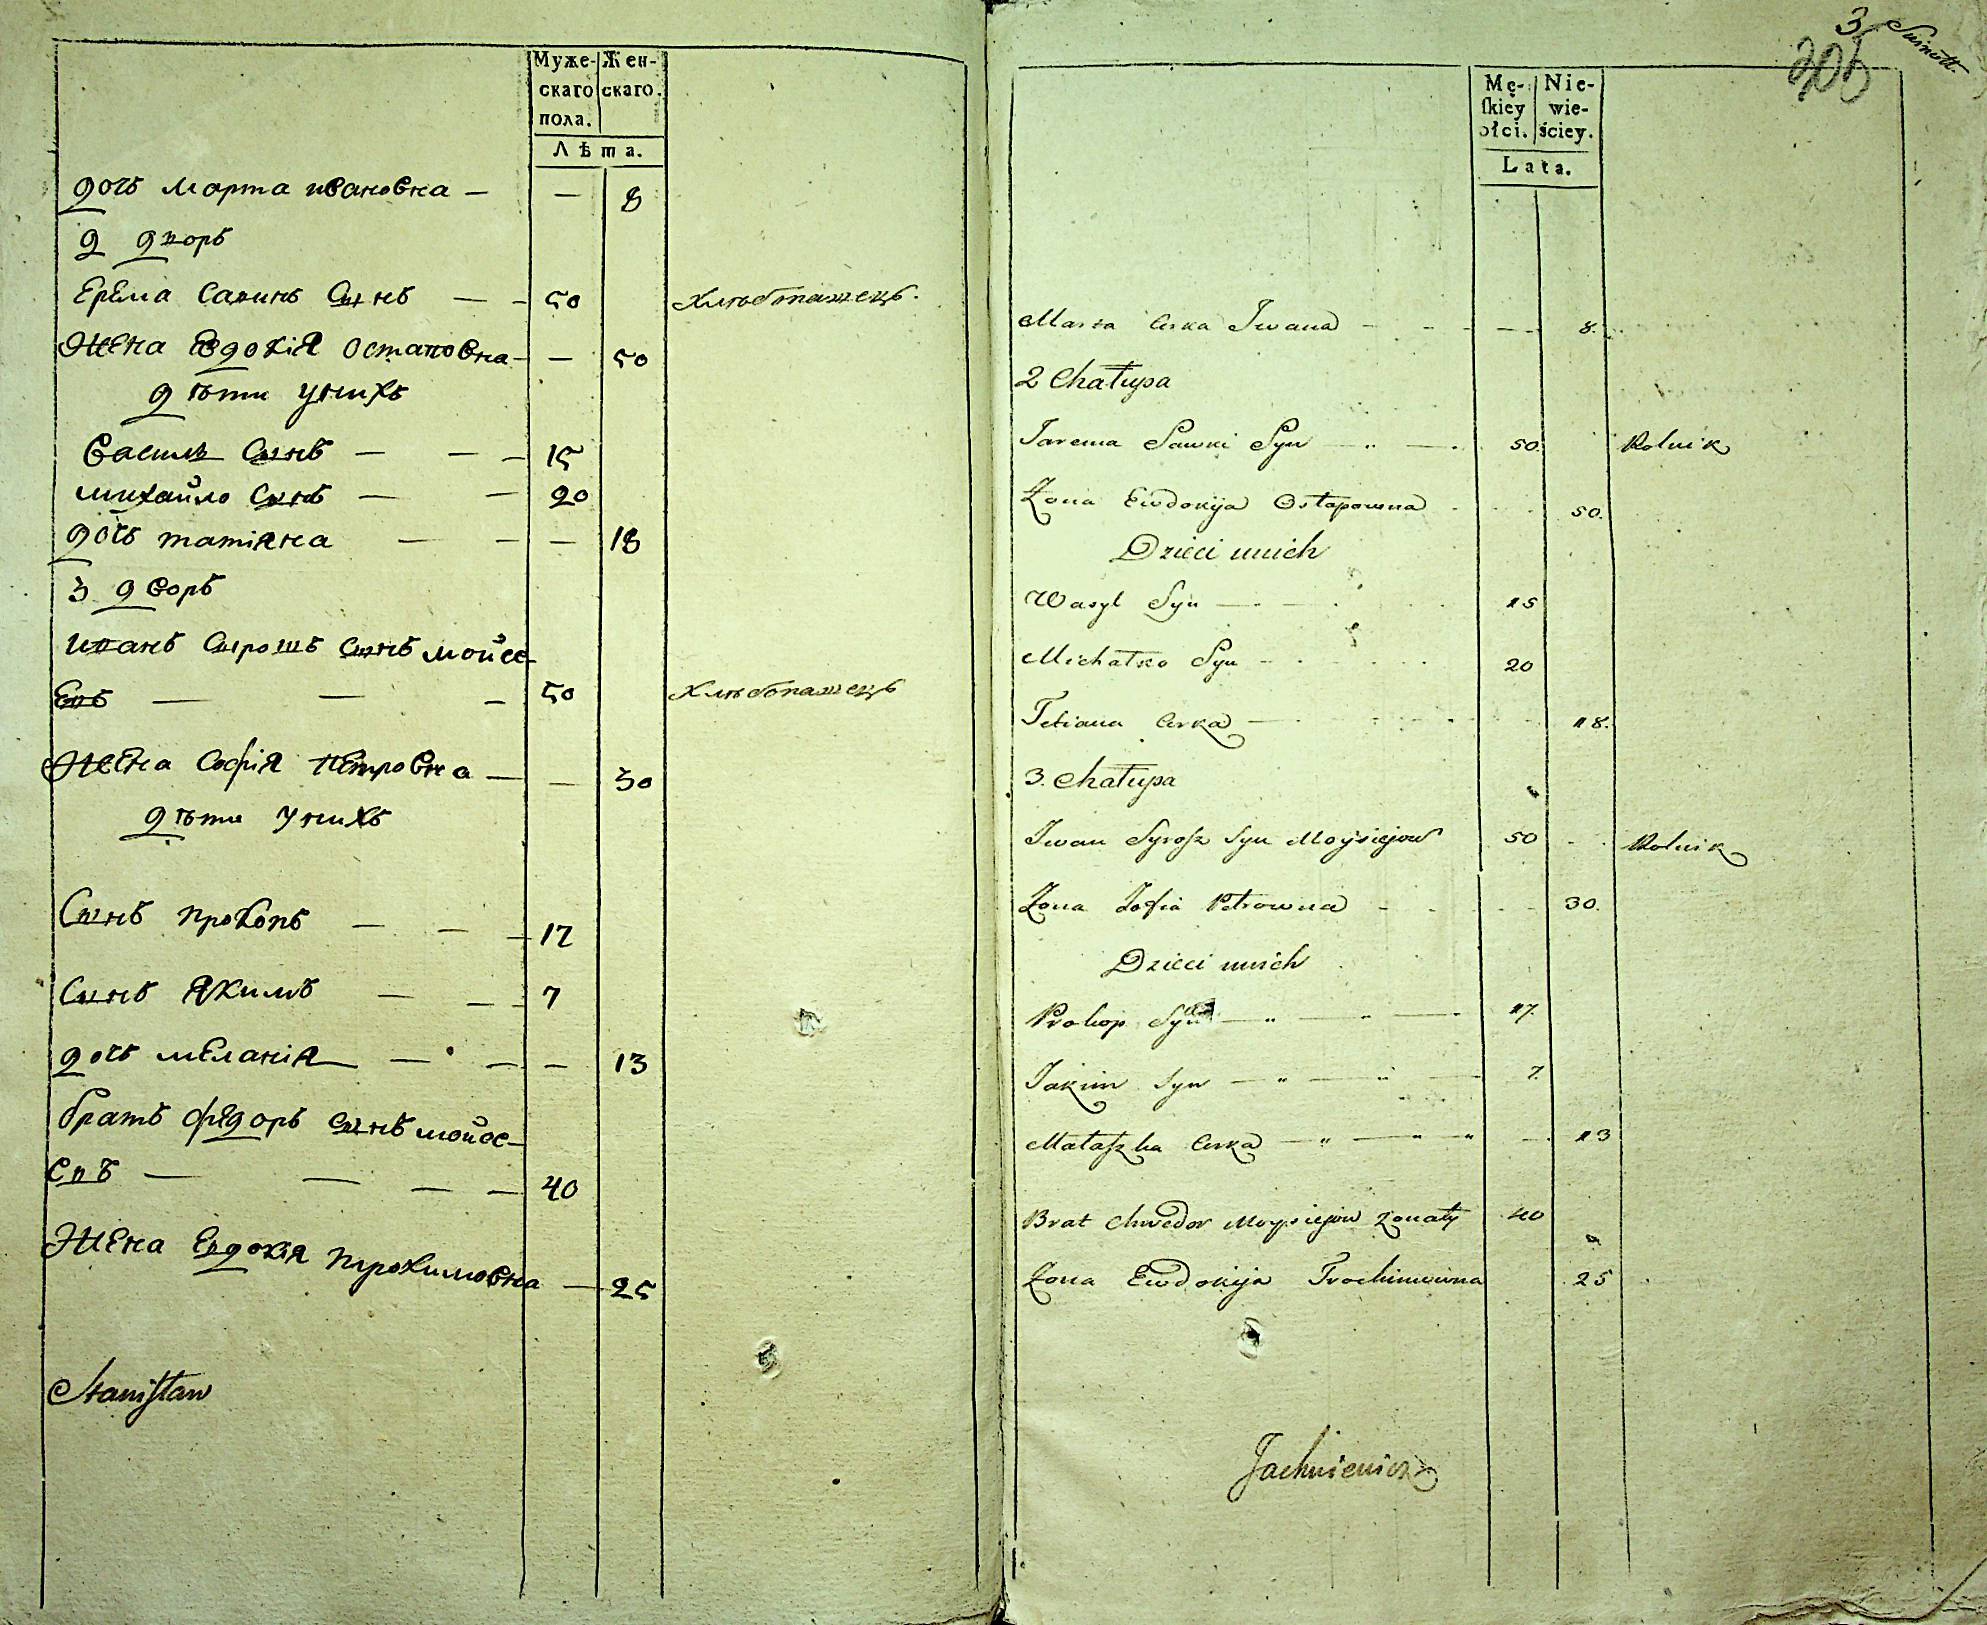 Муже-
скаго
пола.
Жен-
скаго.
Лѣта.
дочь марта ивановна — — 8
2 дворъ
Ерема Савинъ Сынъ — - 50 Хлѣбопашецъ.
Жена Евдокія Остаповна - — 50
дѣти унихъ
Василь Сынъ — — - 15
михайло Сынъ — — 20
дочь татіяна — - — 18
3 дворъ
иванъ Сырошъ Сынъ мойсе-
Евъ — — - 50 Хлѣбопашецъ
Жена Софія Петровна — — 30
дѣти унихъ
Сынъ прокопъ — - — 17
Сынъ якимъ — - - 7
дочь меланія — - — 13
братъ фядоръ сынъ мойсе-
Евъ — — — - 40
Жена Евдокія трохимовна — 25
Staniſław
3
205
Mę-
ſkiey
płci.
Nie-
wie-
ściey.
Lata.
Marta Crka Iwana - - - — 8.
2 Chałupa
Jarema Sawki Syn — „ — 50. Rolnik
Żona Ewdokija Ostapowna 50.
Dzieci unich
Wasyl Syn — 15
Michałko Syn - 20
Tetiana Crka — 18.
3. Chałupa
Iwan Syroſz Syn Moysiejow 50 Rolnik
Żona Zofia Petrowna - - - 30.
Dzieci unich
Prokop Syn — „ — „ — 17.
Jakim Syn — „ — „ — 7.
Małaſzka Crka — „ — „ „ — 13
Brat Chwedor Moysiejow Żonaty 40
Żona Ewdokija Trochimowna 25
Jachniewicz